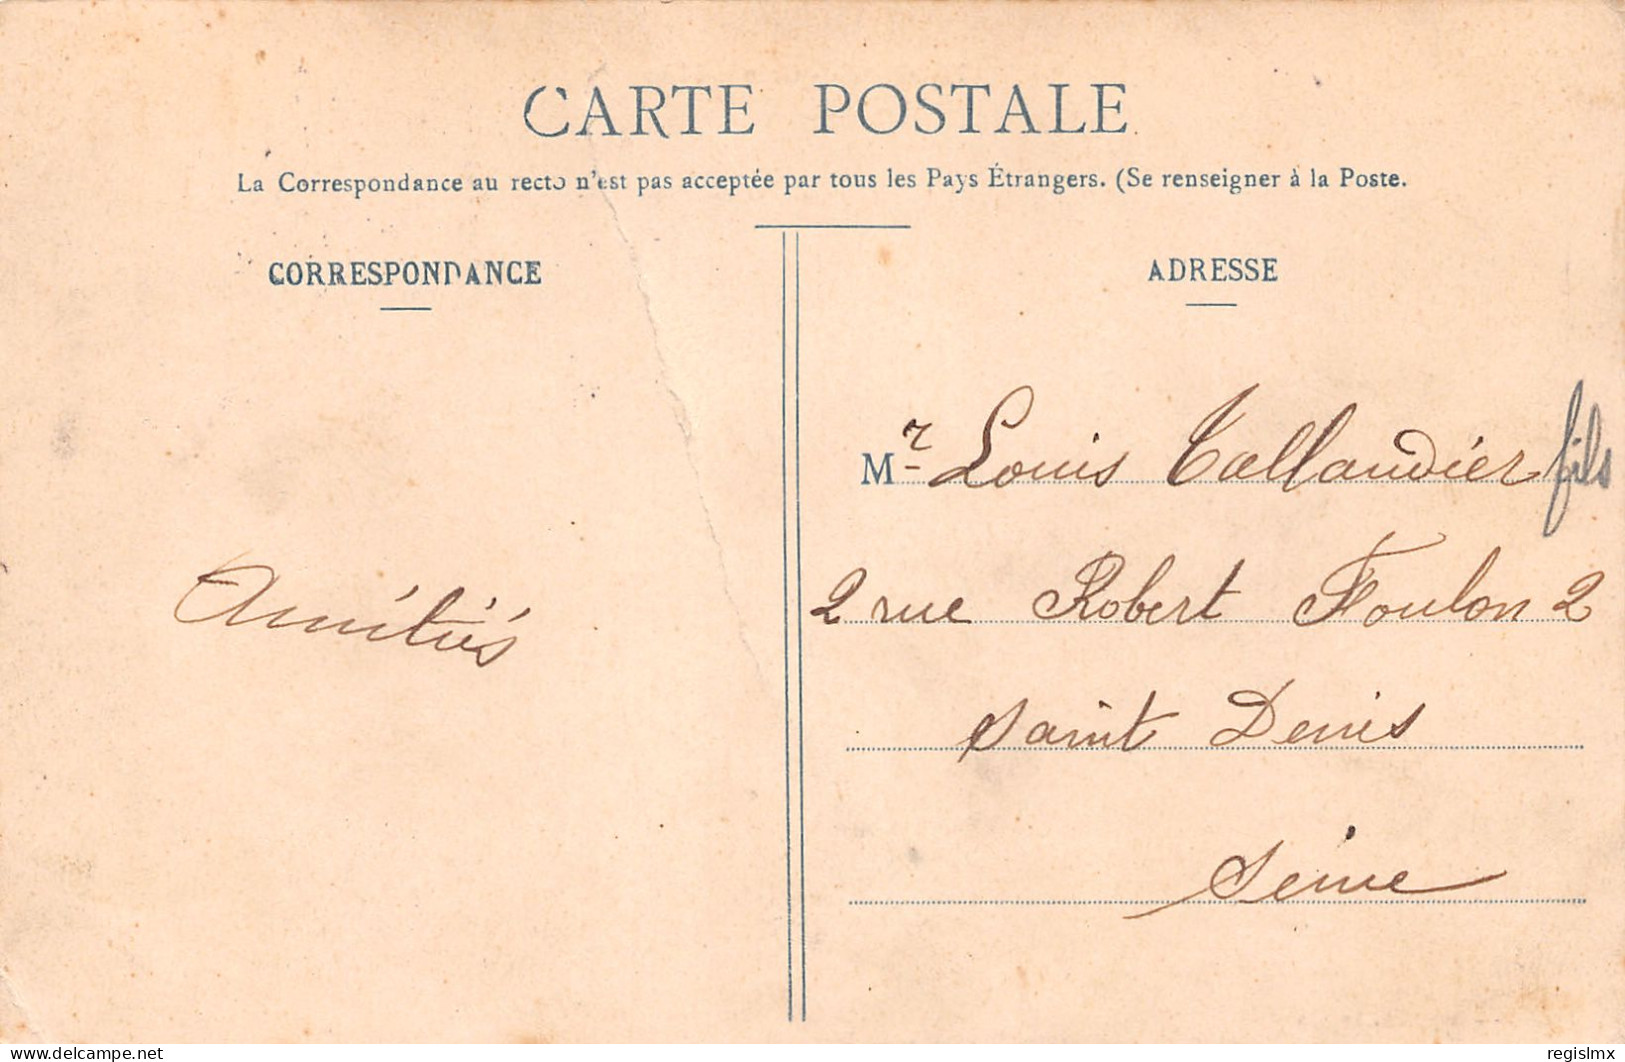 CARTE POSTALE
La Correspondance au recto n'est pas acceptée par tous les Pays Étrangers. (Se renseigner à la Poste.
CORRESPONDANCE
Amitiés
ADRESSE
Mr Louis Tallandier fils
2 rue Robert Foulon 2
Saint Denis
Seine
delcampe.net
regislmx